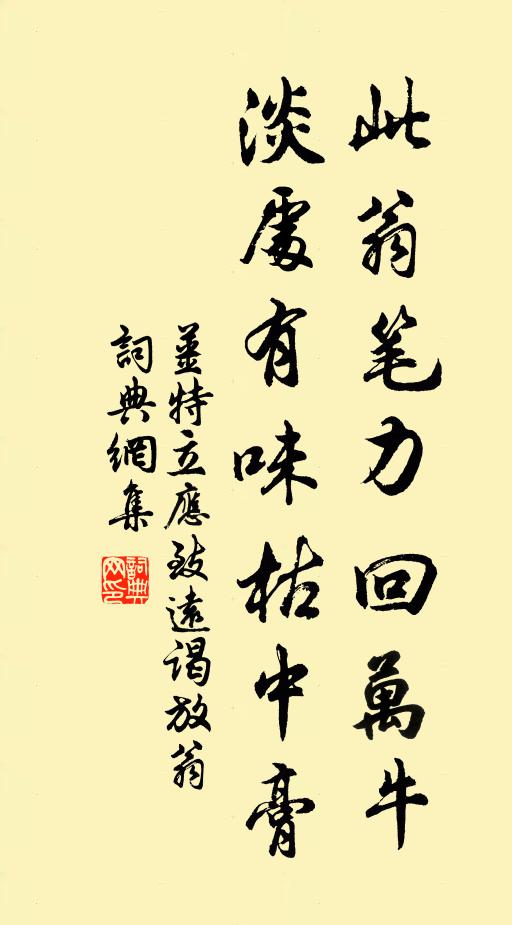 此翁笔力回萬牛
淡處有味枯中膏
姜特立應致遠謁放翁
詞典網集
詞典網印